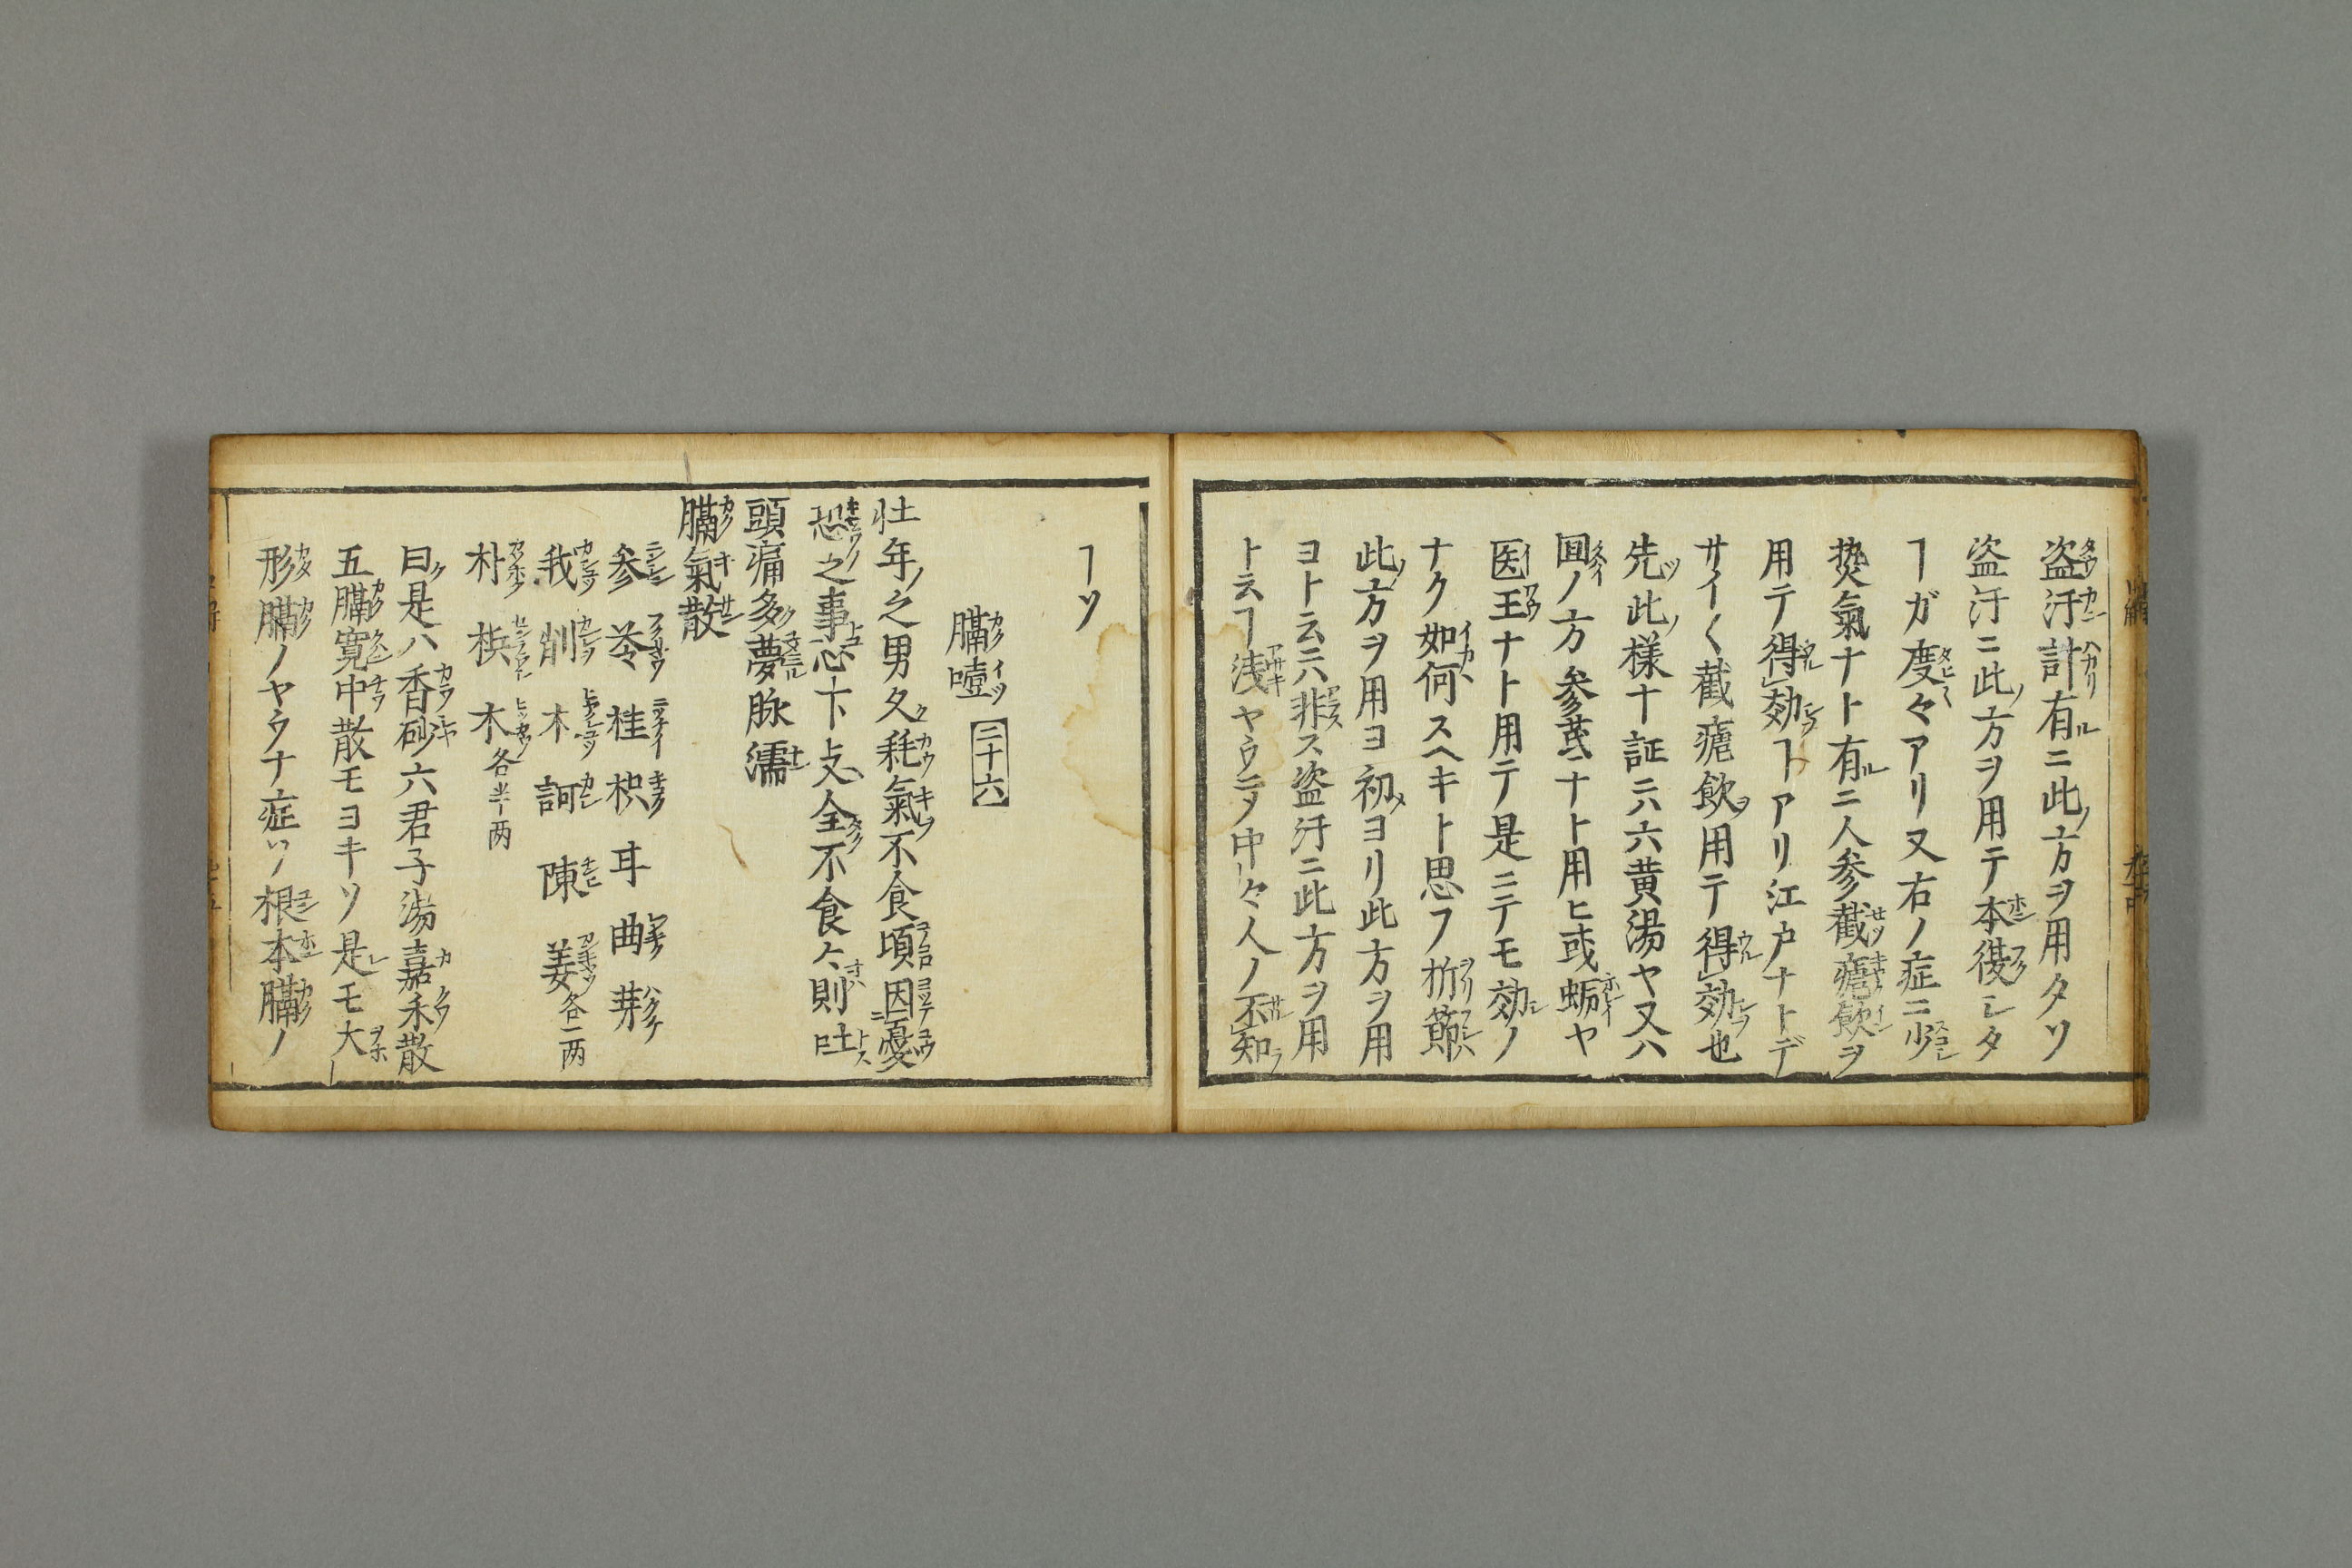 盗汗計有ニ此方ヲ用タソ
盗汗ニ此ノ方ヲ用テ本復シタ
ヿガ度々アリ又右ノ症ニ少
熱氣ナト有ルニ人参截瘧飲ヲ
用テ得効ヿアリ江戸ナトデ
サイ〱截瘧飲ヲ用テ得効也
先ツ此ノ様ナ証ニハ六黄湯ヤ又ハ
囬ノ方参茋ナト用ヒ或蛎ヤ
医王ナト用テ是ニテモ効ノ
ナク如何スヘキト思フ折節
此ノ方ヲ用ヨ初メヨリ此方ヲ用
ヨト云ニハ非ス盗汗ニ此方ヲ用
ト云ヿ浅ヤウニテ中々人ノ不知ラ
ヿソ
膈噎 三十六
壮年ノ之男久耗氣不食頃因憂
恐之事心下支全不食食則吐
頭痛多夢脉濡
膈氣散
参 苓 桂 枳 耳 曲 芽
我 削 木 訶 陳 姜 各二両
朴 梹 木 各半両
曰ク是ハ香砂六君子湯嘉禾散
五膈寛中散モヨキソ是レモ大
形膈ノヤウナ症ソ根本膈ノ